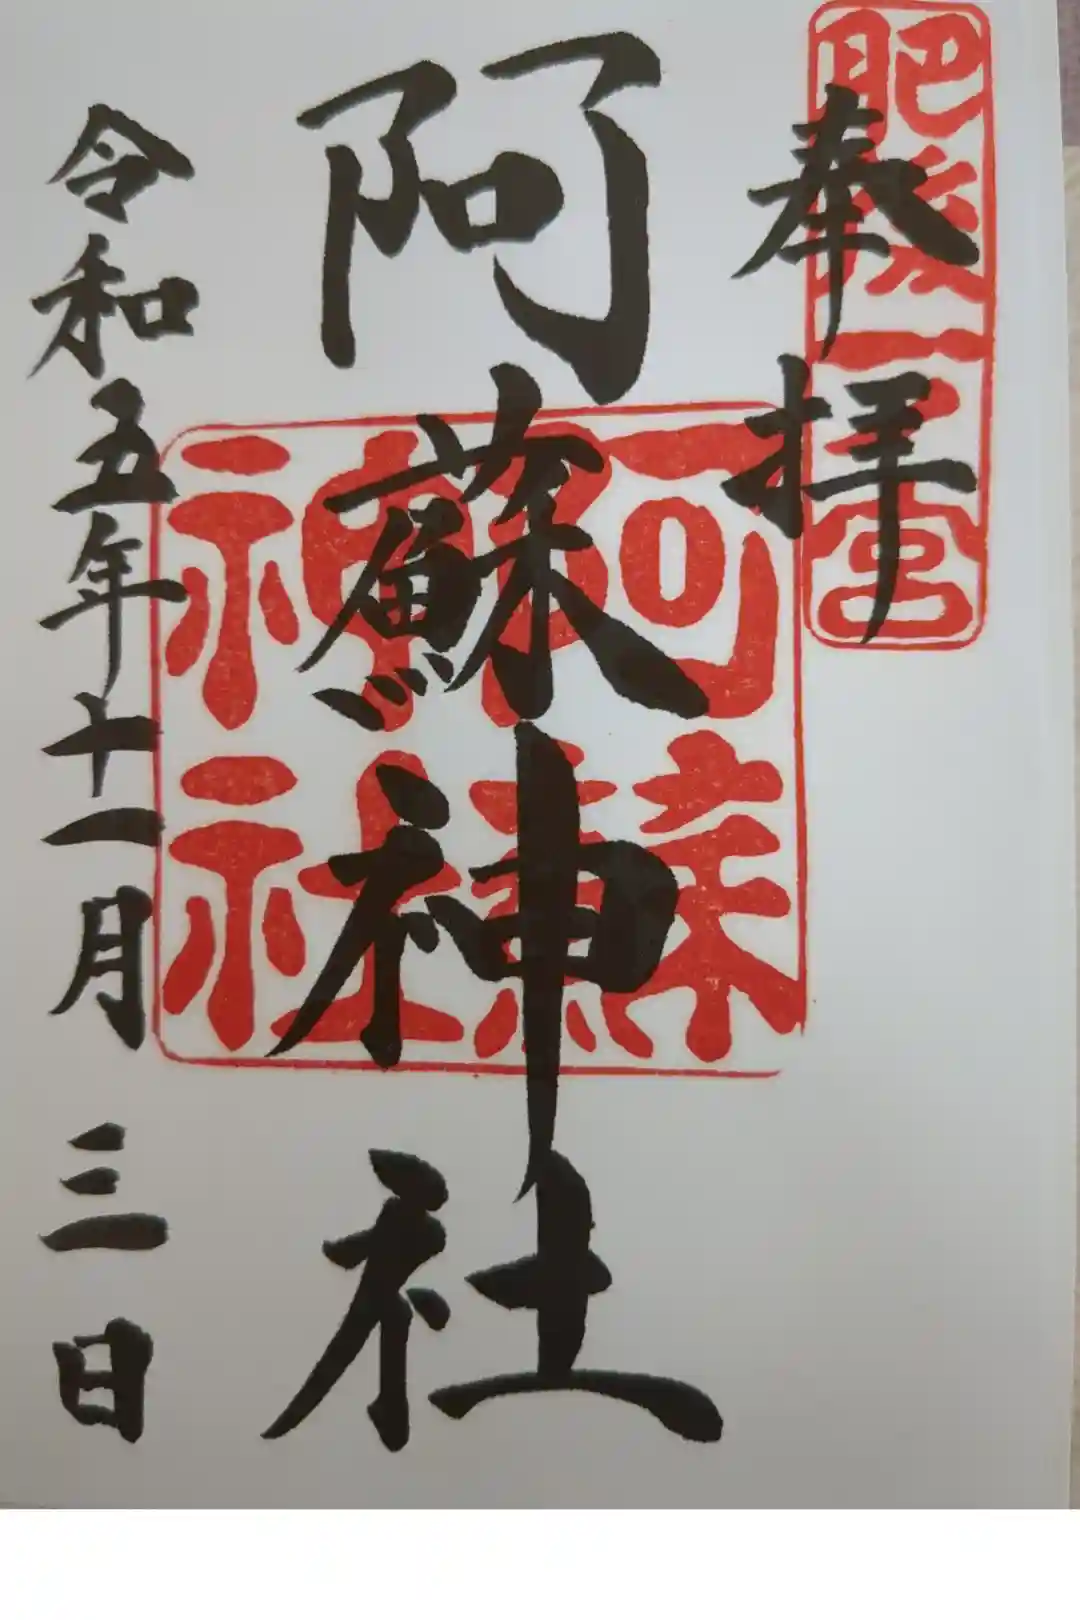 奉拝
肥後一宮
阿蘇神社
阿蘇神社
令和五年十一月三日